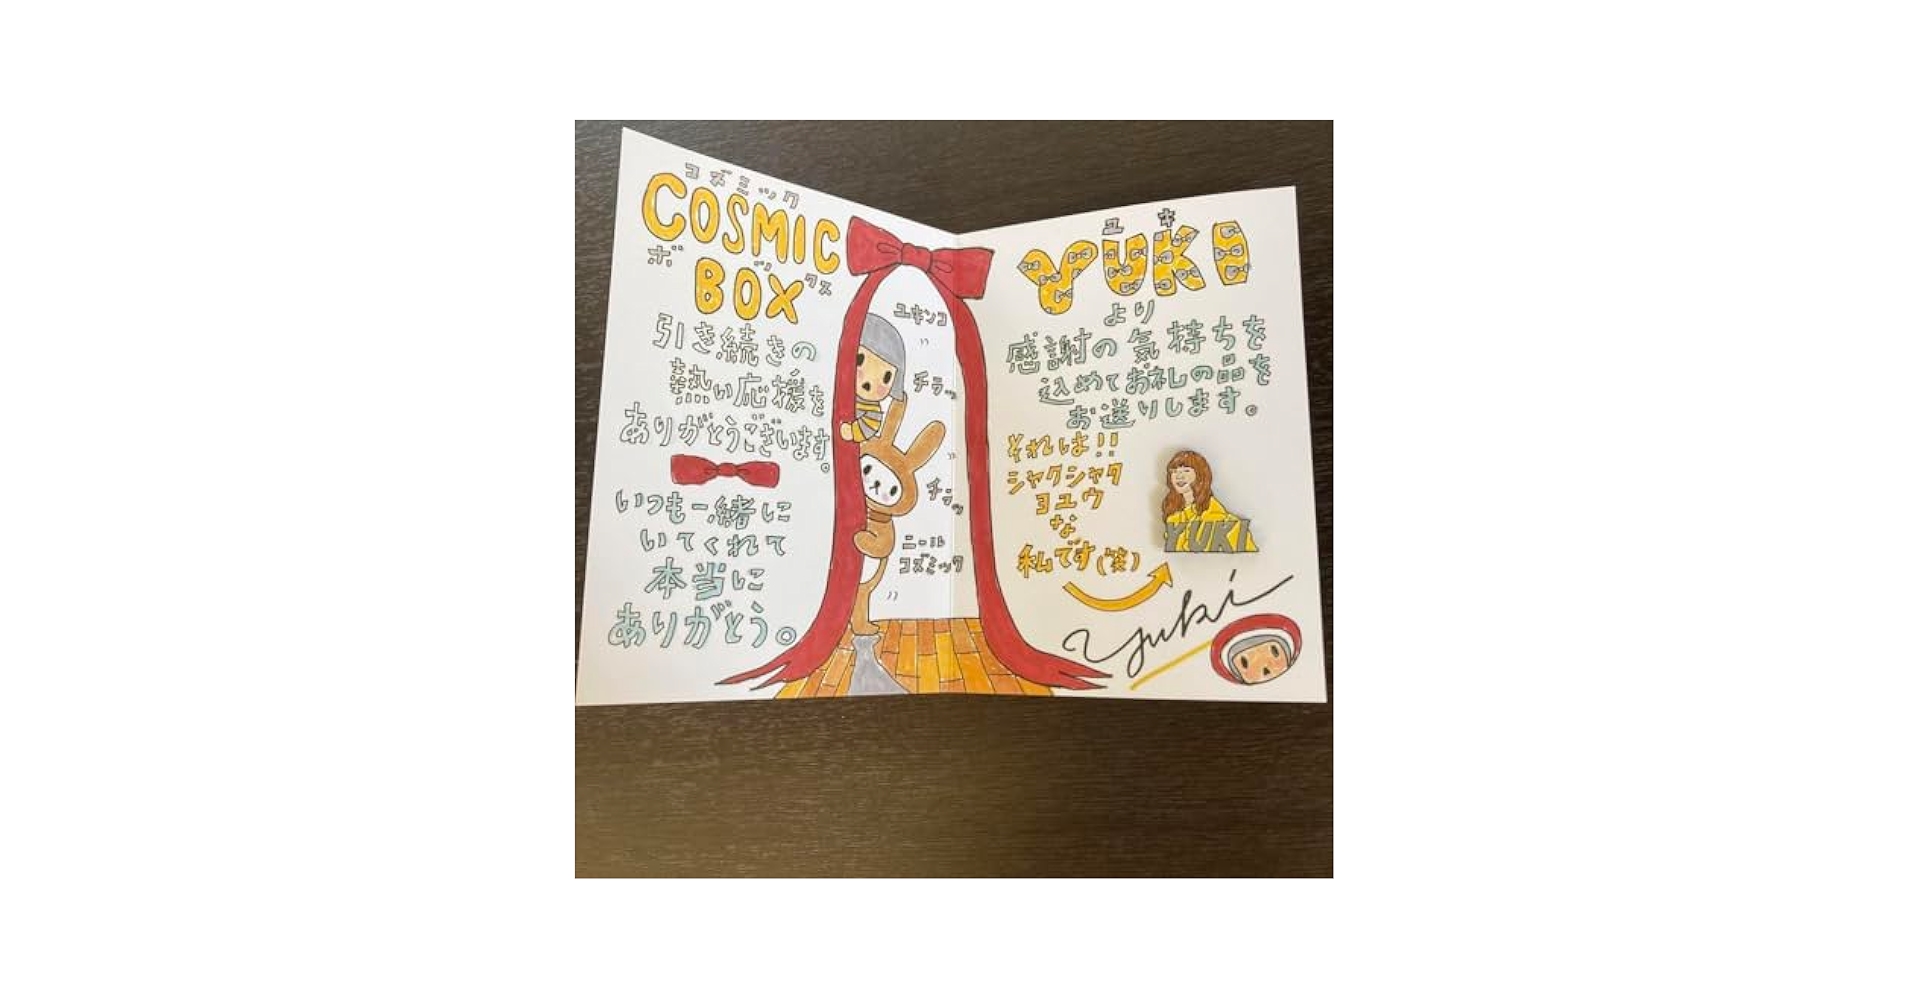 コズミック
COSMIC
ボックス
BOX
引き続きの
熱い応援を
ありがとうございます。
いつも一緒に
いてくれて
本当に
ありがとう。
ユキンコ
チラッ
チラッ
ニール
コズミック
ユキ
YUKI
より
感謝の気持ちを
込めてお礼の品を
お送りします。
それは!!
シャクシャタ
ヨユウ
な
私です(笑)
YUKI
yuki